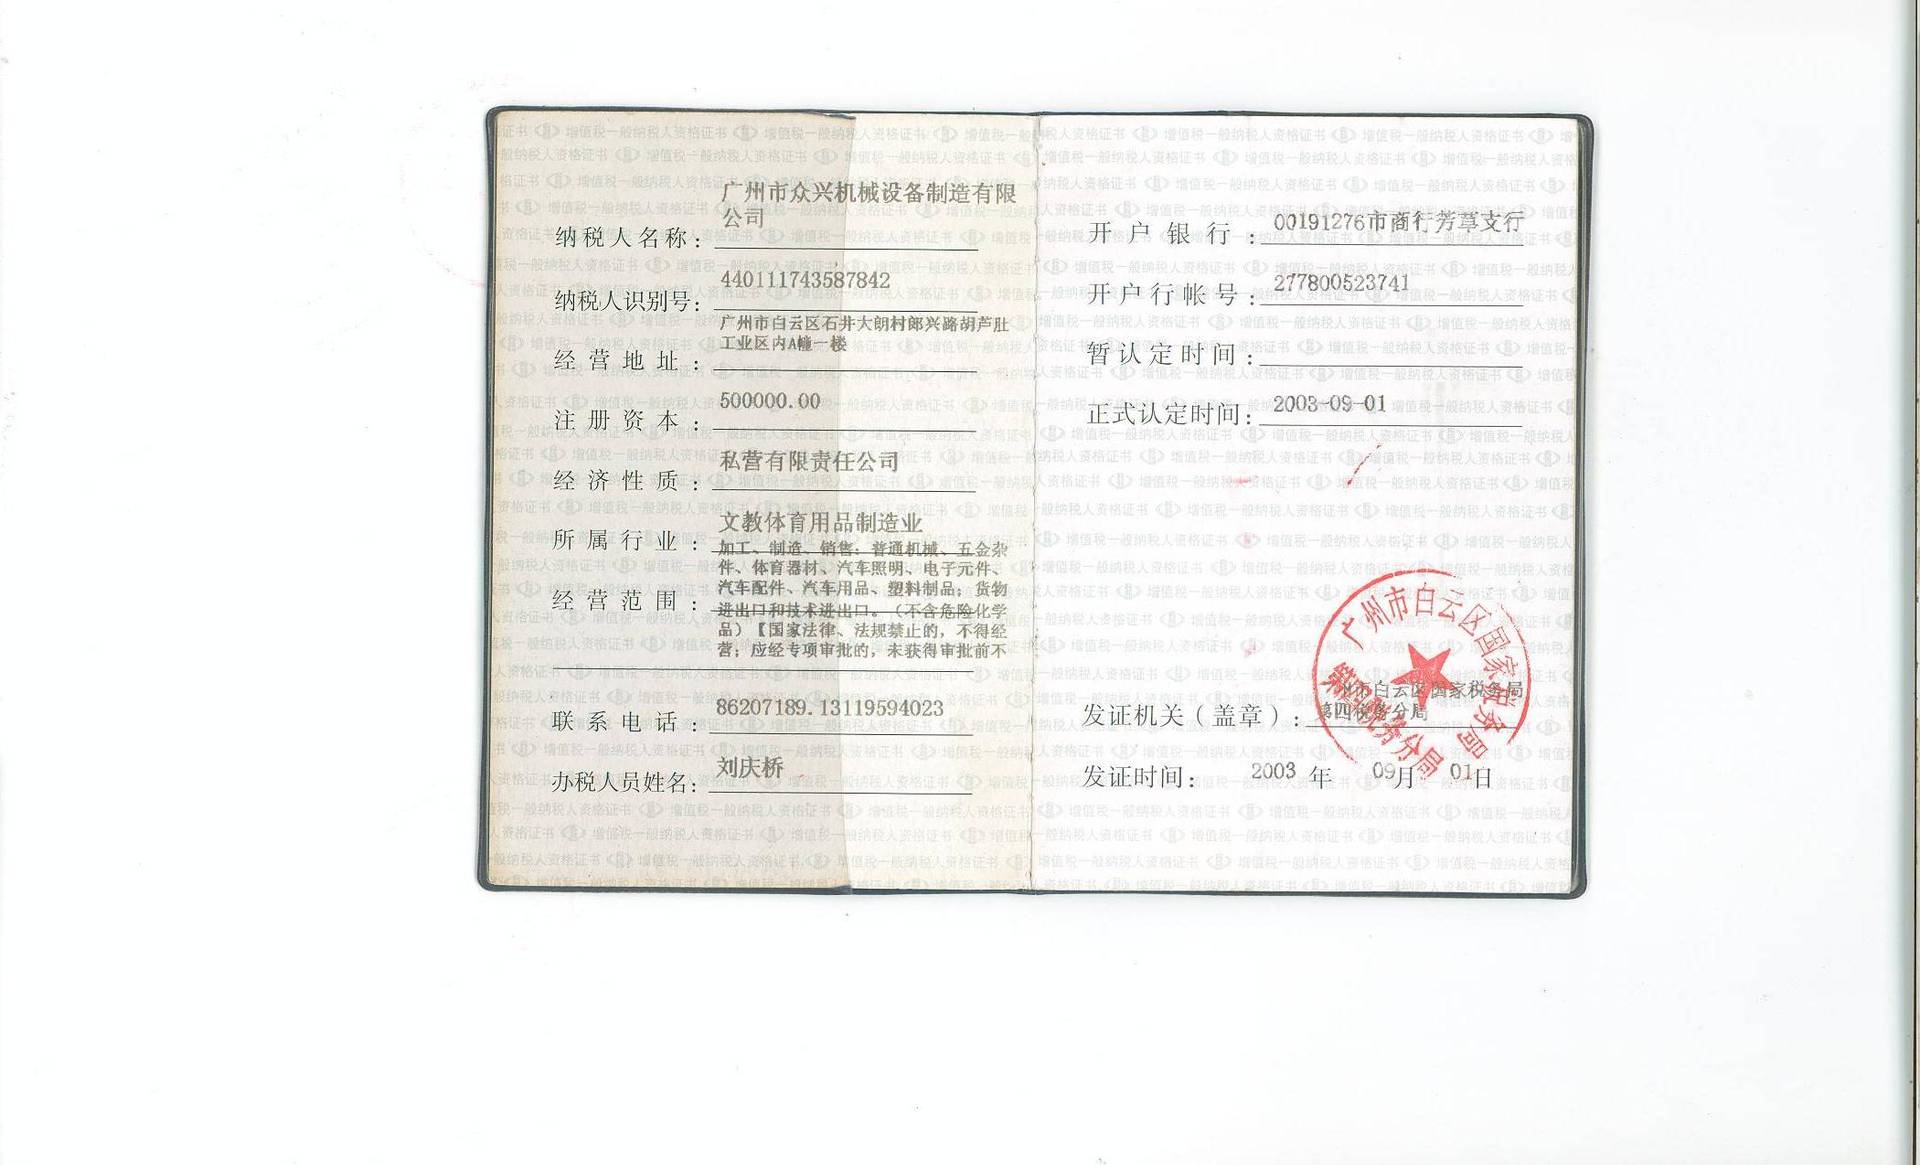 广州市众兴机械设备制造有限
公司
纳税人名称：
440111743587842
纳税人识别号：
广州市白云区石井大朗村郎兴路胡芦肚
工业区内A幢一楼
经营地址：
500000.00
注册资本：
私营有限责任公司
经济性质：
文教体育用品制造业
所属行业：
加工、制造、销售：普通机械、五金杂
件、体育器材、汽车照明、电子元件、
汽车配件、汽车用品、塑料制品；货物
经营范围：
进出口和技术进出口。（不含危险化学
品）【国家法律、法规禁止的，不得经
营；应经专项审批的，未获得审批前不
86207189.13119594023
联系电话：
刘庆桥
办税人员姓名：
开户银行：00191276市商行芳草支行
开户行帐号：277800523741
暂认定时间：
正式认定时间：2003-09-01
广州市白云区国家税务局
第四税务分局
州市白云区国家税务局
发证机关（盖章）：第四税务分局
发证时间：2003年09月01日
增值税一般纳税人资格证书